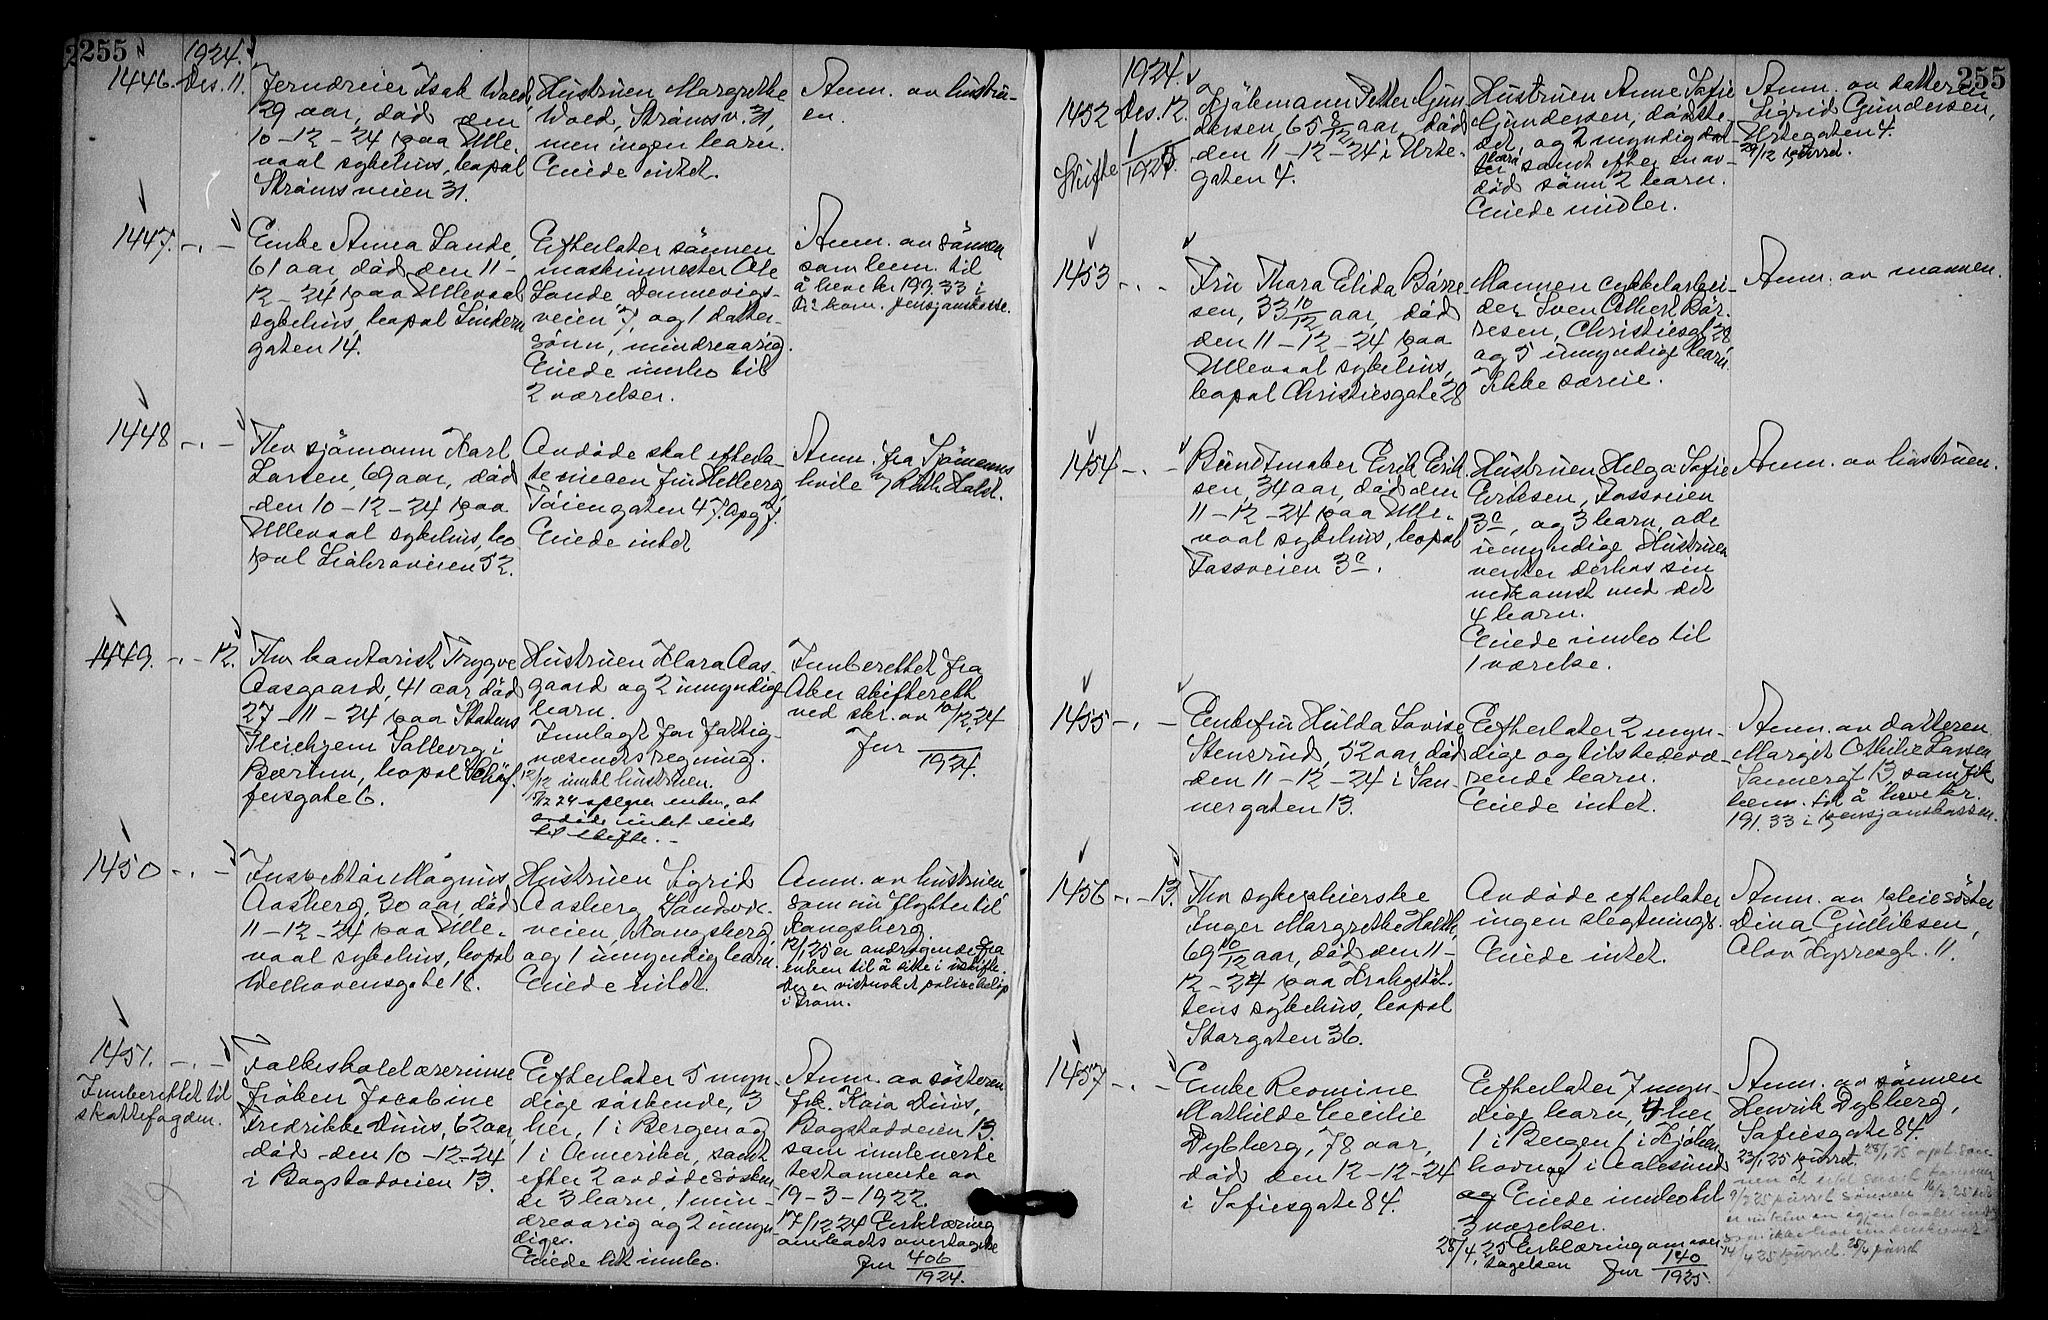 255
1924.
1446. Des. 11.
Jerndreier Isak Wold,
29 aar, död den
10-12-24 paa Ulle-
vaal sykehus, bopæl
Strömsveien 31.
Hustruen Margrethe
Wold, Strömsv. 31,
men ingen barn.
Eiede intet.
Anm. av hustru-
en.
1447. -.-
Enke Anna Lande,
61 aar, död den 11-
12-24 paa Ullevaal
sykehus, bopæl Lindern
gaten 14.
Efterlater sönnen
maskinmester Ole
Lande, Dannevigs-
veien 7, og 1 datter-
sönn, mindreaarig.
Eiede innbo til
2 værelser.
Anm. av sönnen
som bem. til
å heve kr 199.33 i
pensjonskasse.
1448 -.-
Fhv sjömann Karl
Larsen, 69 aar, död
den 10-12-24 paa
Ullevaal sykehus, bo
pæl Liabroveien 52.
Avdöde skal efterla-
te niecen fru Hellberg,
Töiengaten 47. opg. 7.
Eiede intet
Anm. fra Sjömanns
hvile v/ Ruth Holst.
1449. -.- 12.
Fhv kontorist Trygve
Aasgaard, 41 aar, död
27-11-24 paa Statens
Pleiehjem Solberg i
Bærum, bopæl Schöf-
fersgate 6.
Hustruen Klara Aas-
gaard og 2 umyndige
barn.
Innlagt for fattig-
væsenets regning.
12/12 innk hustruen.
15/12 24 opgir enken, at
avdöde intet eiede
til skifte. -
Innberettet fra
Aker skifterett
ved skr. av 10/12 24
Jnr
1924.
1450 -.-
Inspektör Magnus
Aasberg, 30 aar, död
11-12-24 paa Ulle-
vaal sykehus, bopæl
Welhavensgate 18.
Hustruen Sigrid
Aasberg Sandvic-
veien, Kongsberg,
og 1 umyndig barn.
Eiede intet.
Anm. av hustruen
som nu flytter til
Kongsberg.
12/1 25 er andragende fra
enken til å sitte i uskifte.
i from.
1451. -.-
Innberettet til
skattefogden.
Folkeskolelærerinne
fröken Jocobine
Fredrikke Duus, 62 aar,
död den 10-12-24
i Bogstadveien 13.
Efterlater 5 myn-
dige söskende, 3
her, 1 i Bergen og
1 i Amerika, samt
efter 2 avdöde sösken
de 3 barn, 1 min-
dreaarig og 2 umyn-
dige.
Eiede litt innbo.
Anm. av sösteren
frk. Kaia Duus,
Bogstadveien 13.
som innleverte
testamente av
19-3-1922.
17/12 24 Erklæring
om boets overtagelse
Jnr 406
1924.
255
1924.
1452 Des. 12.
Skifte 1
1925.
Kjökemann Petter Gun-
dersen, 65 8/12 aar, död
den 11-12-24 i Urte-
gaten 4.
Hustruen Anne Sofie
Gundersen, dödste-
det, og 2 myndige
barn samt efter en av-
död sönn 2 barn.
Eiede midler.
Anm. av datteren
Sigrid Gundersen,
Urtegaten 4.
29/12 purret.
1453 -.-
Fru Thora Elida Börre-
sen, 33 10/12 aar, död
den 11-12-24 paa
Ullevaal sykehus,
bopæl Christiesgate 28
Mannen cykkelarbei-
der Sven Albert Bör-
resen, Christiesgt 28
og 5 umyndige barn.
Ikke særeie.
Anm. av mannen.
1454 -.-
Buntmaker Erik Erik-
sen, 34 aar, död den
11-12-24 paa Ulle-
vaal sykehus, bopæl
Fossveien 3c.
Hustruen Helga Sofie
Eriksen, Fossveien
3c, og 3 barn, alle
umyndige. Hustruen
venter derhos sin
nedkomst med det
4 barn.
Eiede innbo til
1 værelse.
Anm. av hustruen.
1455 -.-
Enkefru Hulda Lovise
Stensrud, 52 aar, död
den 11-12-24 i San-
nergaten 13.
Efterlater 2 myn-
dige og tilstedevæ-
rende barn.
Eiede intet.
Anm. av datteren
Margit Othilie Larsen
Sannergt 13, som fik
bem. til å heve kr.
191.33 i pensjonskassen.
1456 -.- 13.
Fhv sykepleierske
Inger Margrethe Holth,
69 10/12 aar, död den 11-
12-24 paa Krohgstöt-
tens sykehus, bopæl
Storgaten 36.
Avdöde efterlater
ingen slegtninge.
Eiede intet.
Anm. av pleiesöster
Dina Gulliksen,
Olav Kyrresgt. 11.
1457 -.-
Enke Reomine
Mathilde Cecilie
Dybberg, 78 aar,
död den 12-12-24
i Sofiesgate 84.
Efterlater 7 myn-
dige barn, 4 her,
1 i Bergen, 1 i Kjöben-
havn og 1 i Aalesund
og Eiede innbo til
3 værelser.
28/4 25 Erklæring om over
tagelsen Jnr 140
1925.
Anm. av sönnen
Henrik Dybberg,
Sofiesgate 84.
23/1 25 purret.
9/2 25 purret sönnen
14/4 25 purret. 25/4 purret